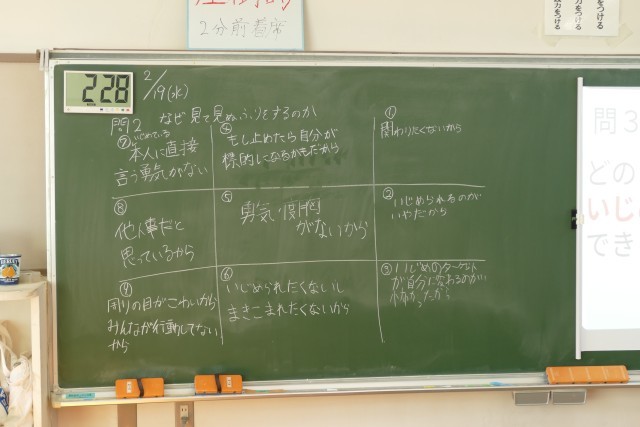 2分前着席
力をつける
力をつける
228
2/19(水)
問2 なぜ見て見ぬふりをするのか
① 関わりたくないから
② いじめられるのが
いやだから
③ いじめのターゲット
が自分に変わるのが
怖かったから
④ もし止めたら自分が
標的になるかもだから
⑤ 勇気・度胸
がないから
⑥ いじめられたくないし
まきこまれたくないから
⑦ いじめている
本人に直接
言う勇気がない
⑧ 他人事だと
思っているから
⑨ 周りの目がこわいから
みんなが行動してない
から
問3
どの
いじ
でき